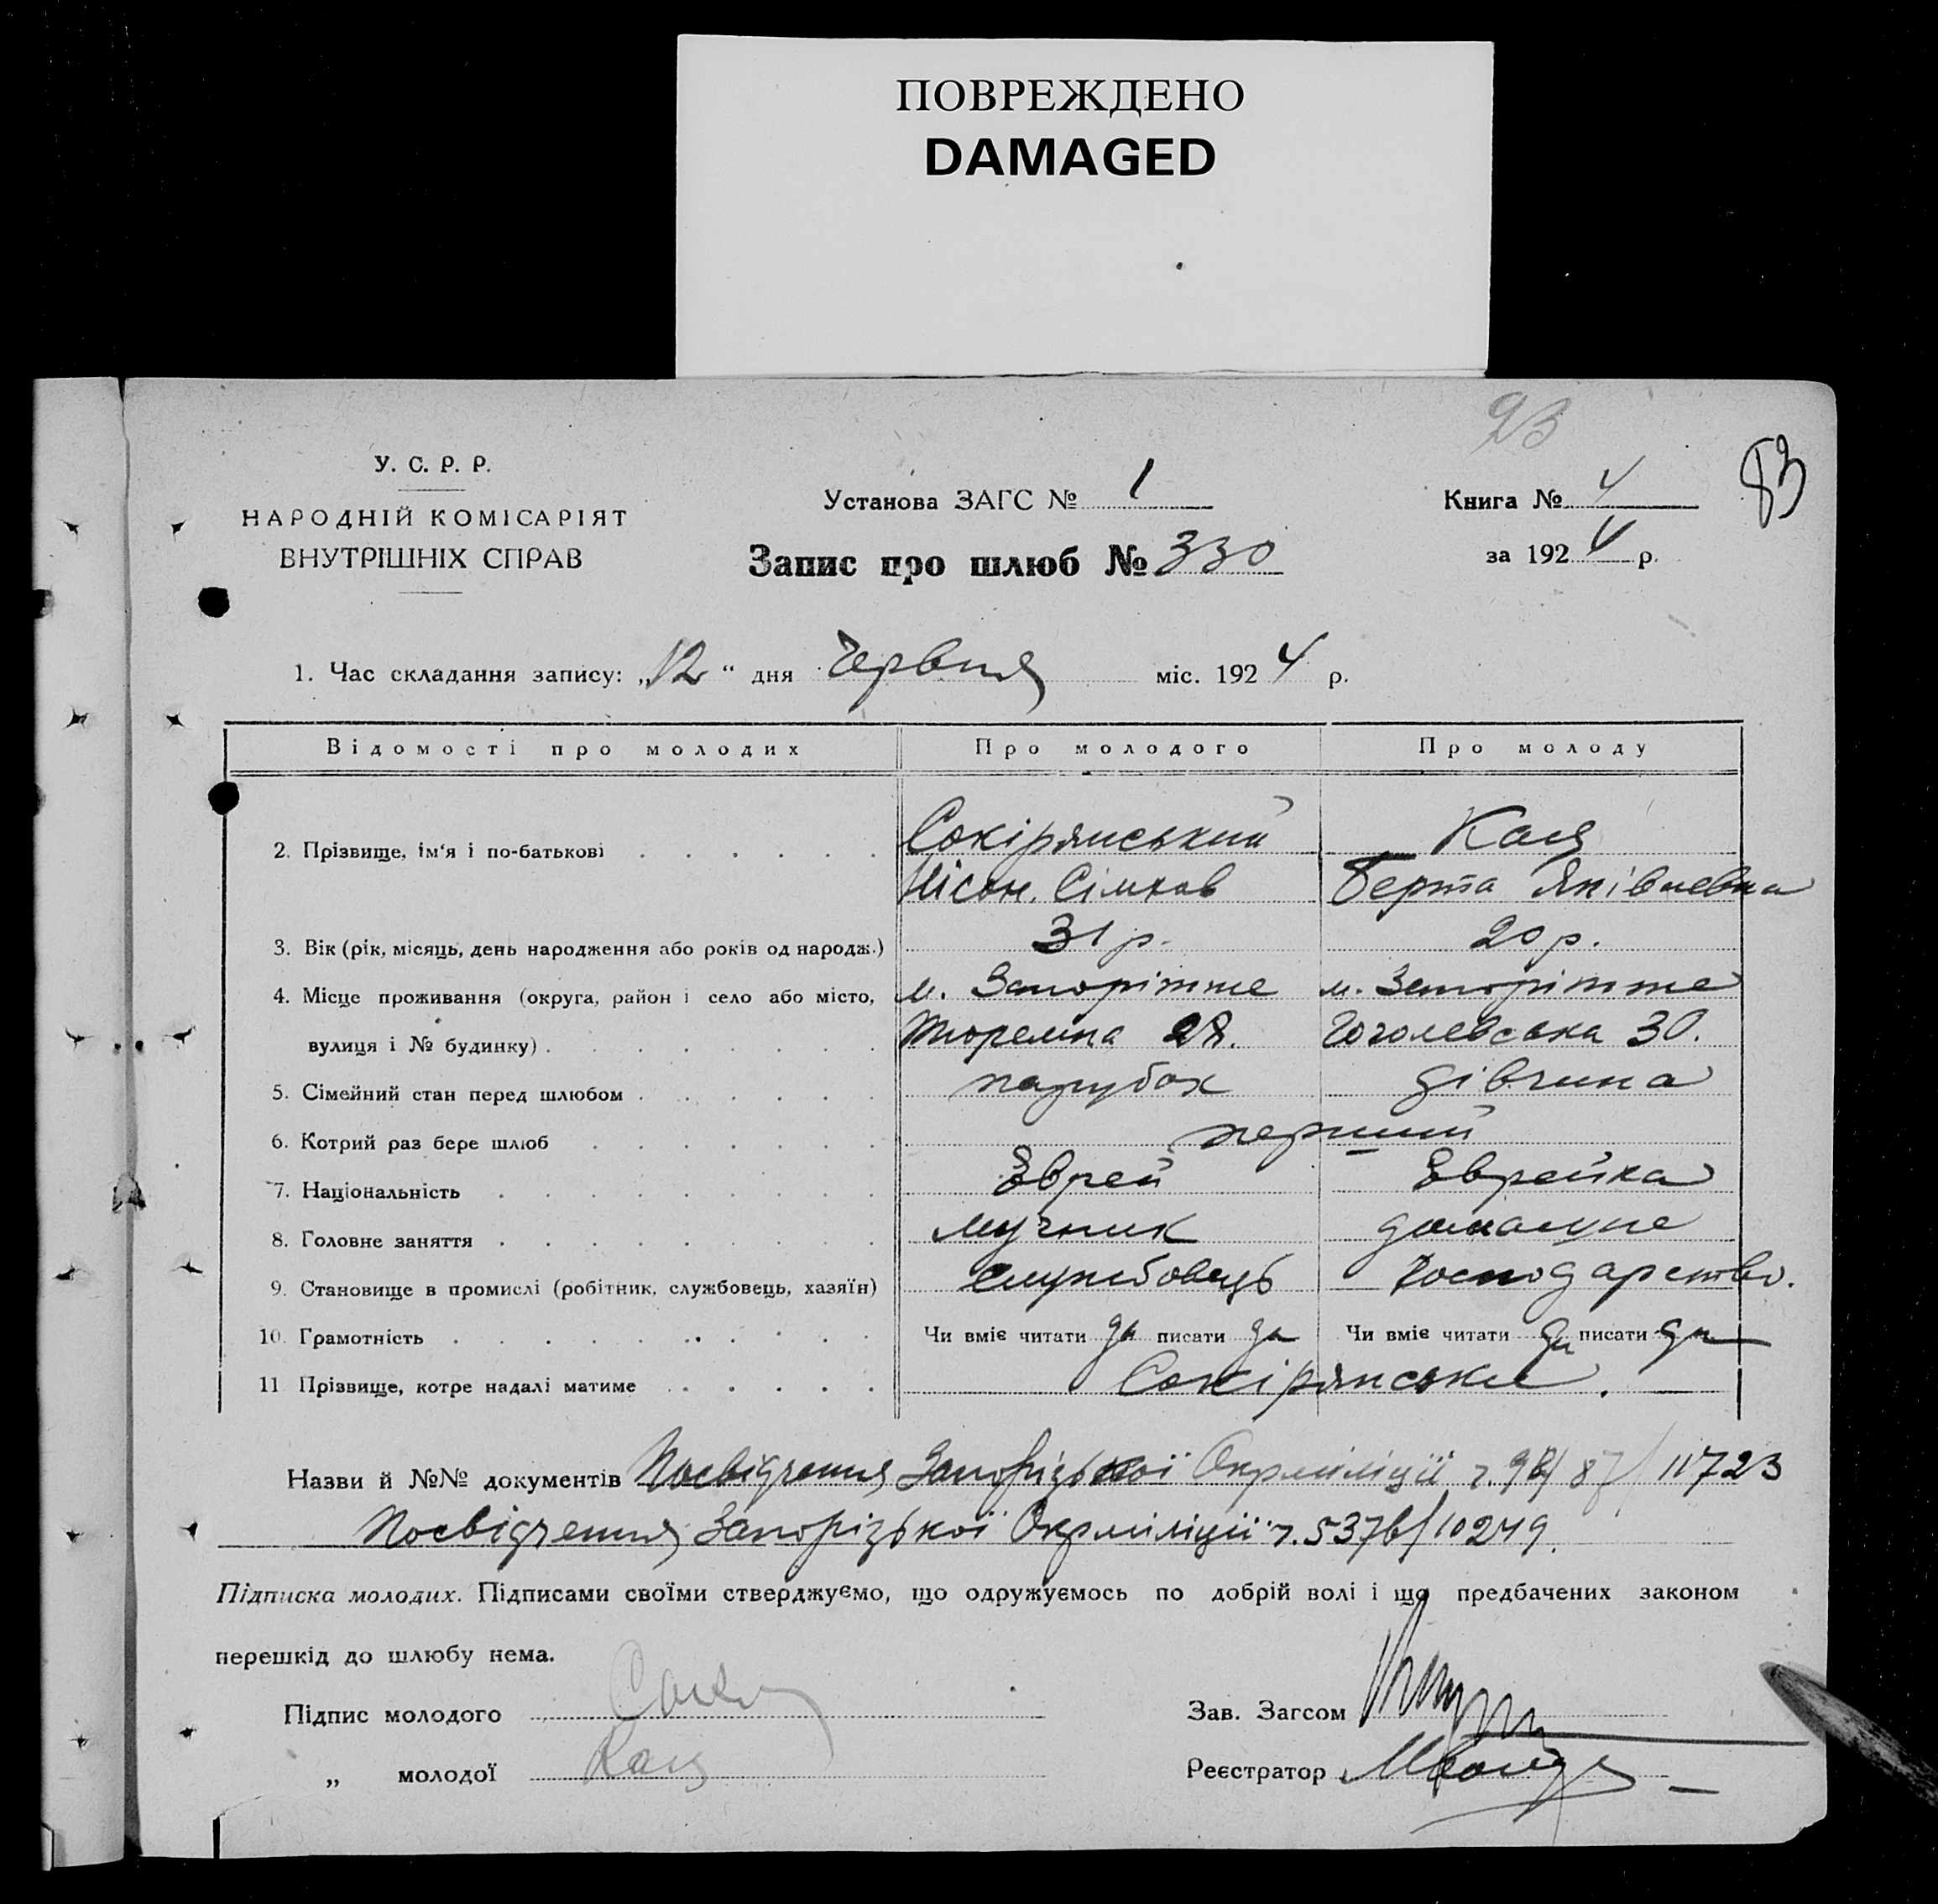 ПОВРЕЖДЕНО
DAMAGED
93
83
У. С. Р. Р.
НАРОДНІЙ КОМІСАРІЯТ
ВНУТРІШНІХ СПРАВ
Установа ЗАГС № 1
Запис про шлюб № 330
Книга № 4
за 1924 р.
1. Час складання запису: „12“ дня Червня міс. 1924 р.
Відомості про молодих Про молодого Про молоду
2. Прізвище, ім'я і по-батькові Сокірянський Кац
Нісон. Сімхов Берта Яківлевна
3. Вік (рік, місяць, день народження або років од народж.) 31 р. 20 р.
4. Місце проживання (округа, район і село або місто, м. Запоріжже м. Запоріжже
вулиця і № будинку) Тюремна 28. Гоголевська 30.
5. Сімейний стан перед шлюбом парубок дівчина
6. Котрий раз бере шлюб перший
7. Національність Єврей Єврейка
8. Головне заняття мучник домашне
9. Становище в промислі (робітник, службовець, хазяїн) службовець господарство.
10. Грамотність Чи вміє читати да писати да Чи вміє читати да писати да
11 Прізвище, котре надалі матиме Сокірянські.
Назви й №№ документів Посвідчення Запорізької Окрміліції ч. 11723
Посвідчення Запорізької Окрміліції ч. 5376/10249.
Підписка молодих. Підписами своїми стверджуємо, що одружуємось по добрій волі і що предбачених законом
перешкід до шлюбу нема.
Підпис молодого
„ молодої Кац
Зав. Загсом
Реєстратор